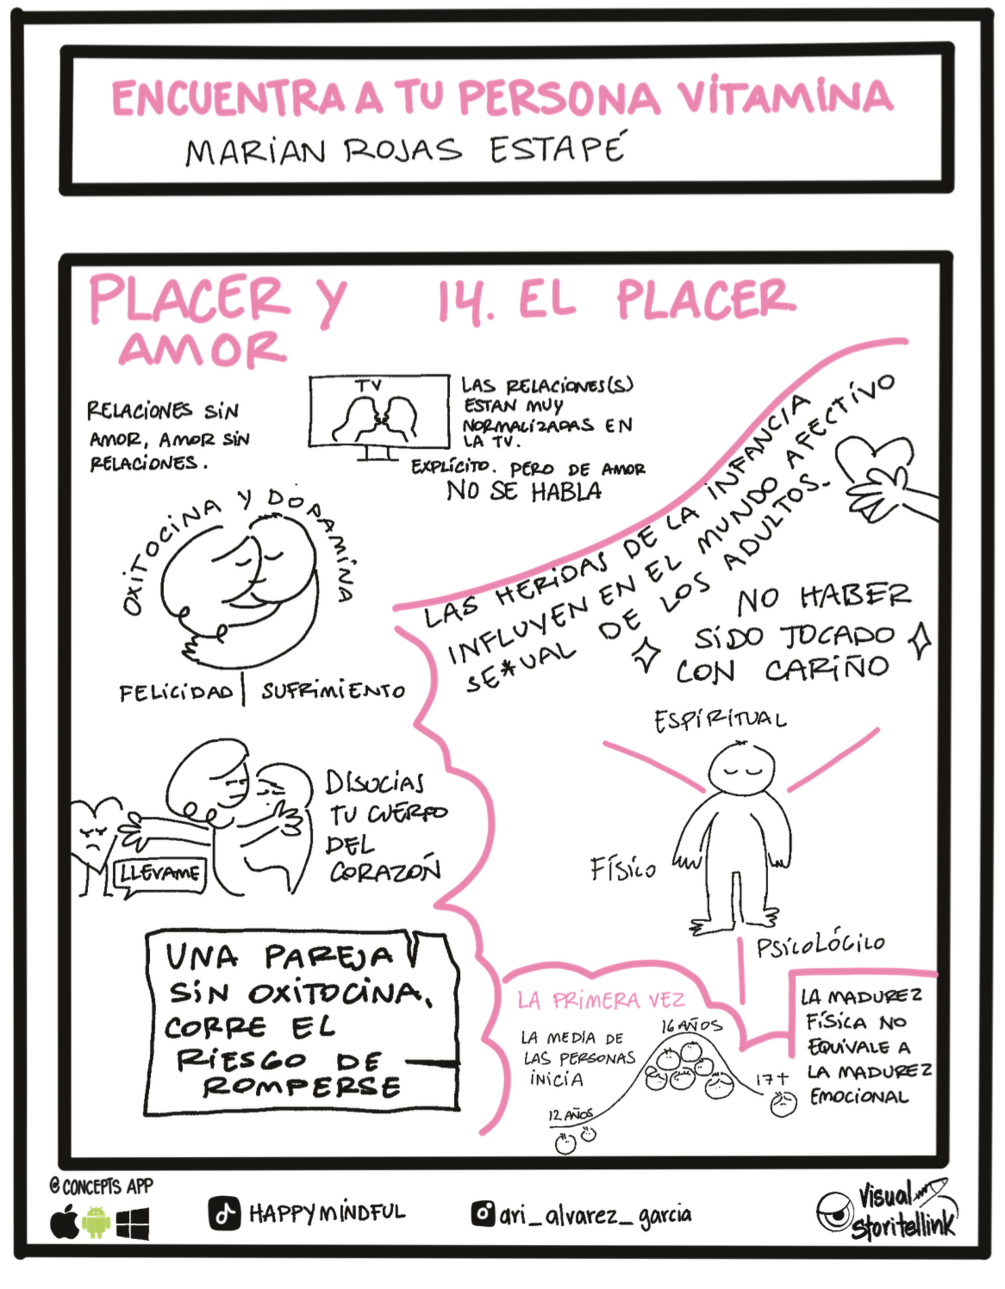 ENCUENTRA A TU PERSONA VITAMINA
MARIAN ROJAS ESTAPÉ
PLACER Y
AMOR
14. EL PLACER
RELACIONES SIN
AMOR, AMOR SIN
RELACIONES.
TV
LAS RELACIONES(S)
ESTAN MUY
NORMALIZADAS EN
LA TV.
EXPLÍCITO. PERO DE AMOR
NO SE HABLA
OXITOCINA Y DOPAMINA
FELICIDAD | SUFRIMIENTO
DISOCIAS
TU CUERPO
DEL
CORAZÓN
LLEVAME
UNA PAREJA
SIN OXITOCINA,
CORRE EL
RIESGO DE
ROMPERSE
LAS HERIDAS DE LA INFANCIA
INFLUYEN EN EL MUNDO AFECTIVO
SE*UAL DE LOS ADULTOS.
NO HABER
SIDO TOCADO
CON CARIÑO
ESPIRITUAL
FÍSICO
PSICOLÓGICO
LA PRIMERA VEZ
LA MEDIA DE
LAS PERSONAS
INICIA
12 AÑOS
16 AÑOS
17+
LA MADUREZ
FÍSICA NO
EQUIVALE A
LA MADUREZ
EMOCIONAL
@ CONCEPTS APP
HAPPYMINDFUL
ari_alvarez_garcia
Visual
Storitellink